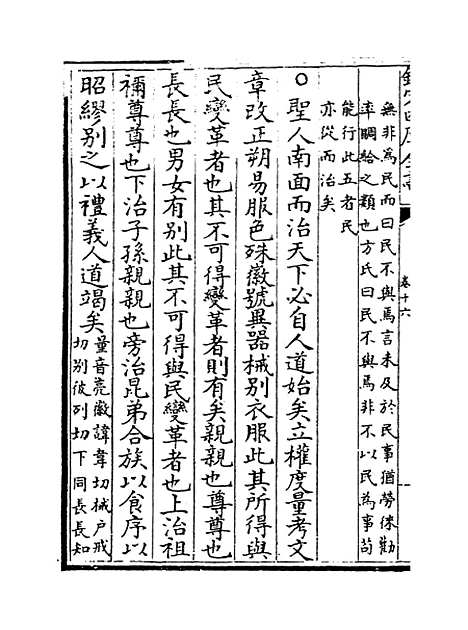 欽定四庫全書
卷十六
無非為民而曰民不與焉言未及於民事猶勞休勸
率賙給之類也方氏曰民不與焉非不以民為事茍
能行此五者民
亦從而治矣
○聖人南面而治天下必自人道始矣立權度量考文
章改正朔易服色殊徽號異器械别衣服此其所得與
民變革者也其不可得變革者則有矣親親也尊尊也
長長也男女有别此其不可得與民變革者也上治祖
禰尊尊也下治子孫親親也旁治昆弟合族以食序以
昭繆别之以禮義人道竭矣
量音亮徽諱韋切械户戒
切别彼列切下同長長知